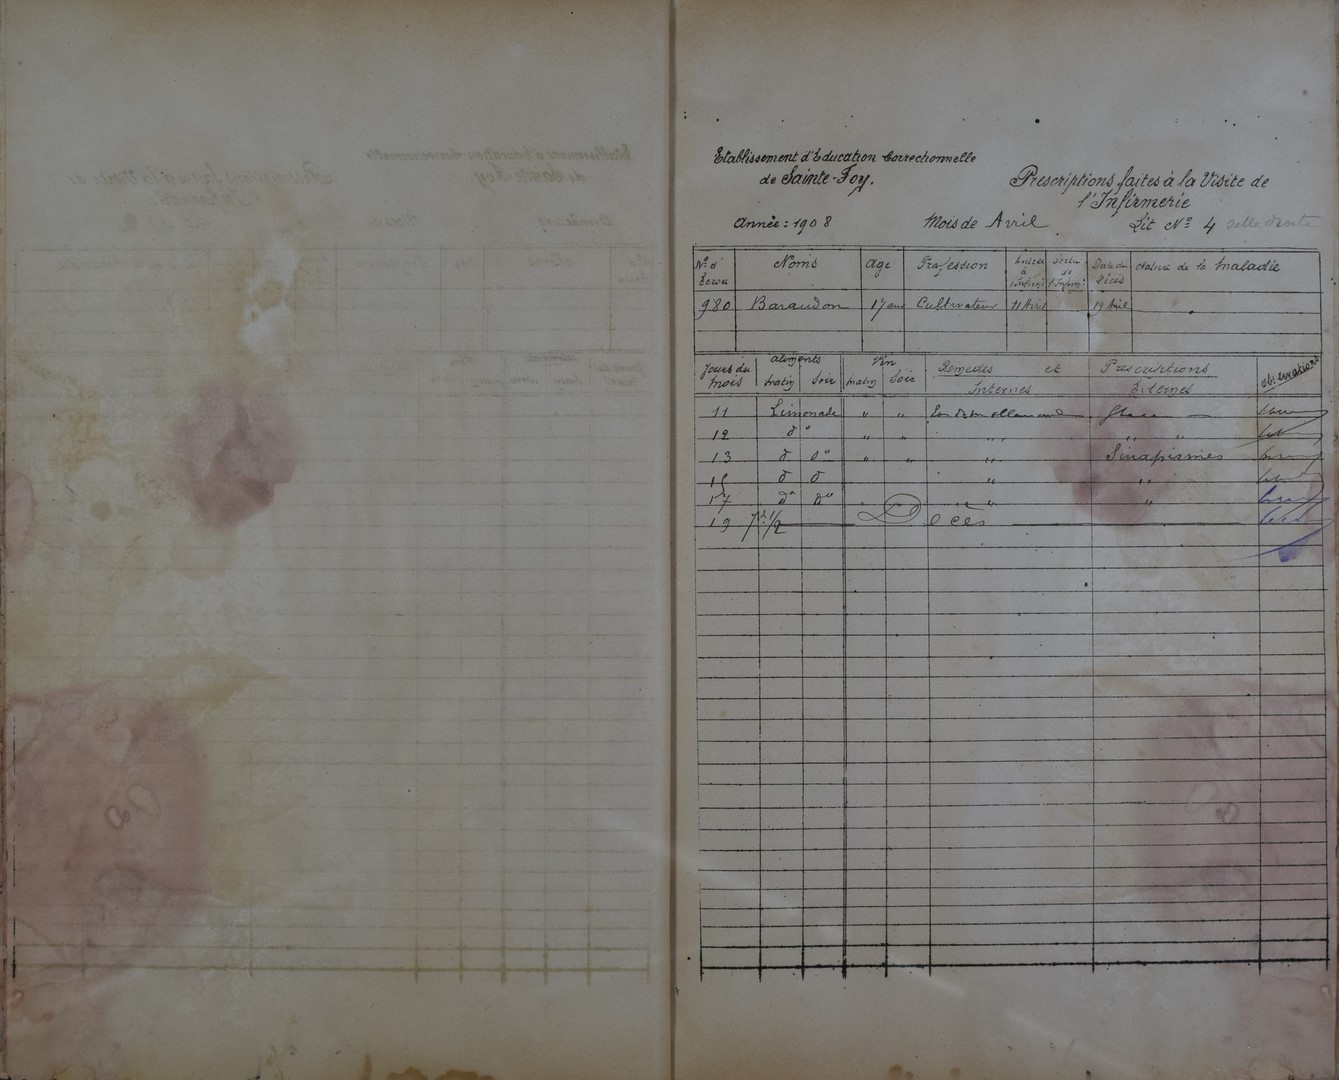 Etablissement d'Education Correctionnelle
de Sainte-Foy.
Prescriptions faites à la Visite de
l'Infirmerie
Année : 1908
Mois de Avril
Lit Nº 4 Salle droite
Nº d' Ecrou Noms Age Profession Entrée à l'Infirm: Sortie de l'Infirm: Date du Décès Nature de la Maladie
980 Baraudon 17 ans Cultivateur 11 Avril 19 Avril
Jours du mois Aliments Vin Remèdes et Prescriptions Observations
Matin Soir Matin Soir Internes Externes
11 Limonade " " Glace
12 d° " " " " "
13 d° d° " " " Sinapismes
15 d° d° " "
17 d° d° " "
19 7h 1/2 Décès